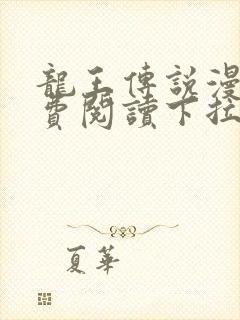 龍王傳說漫
費閱讀下拉
夏華